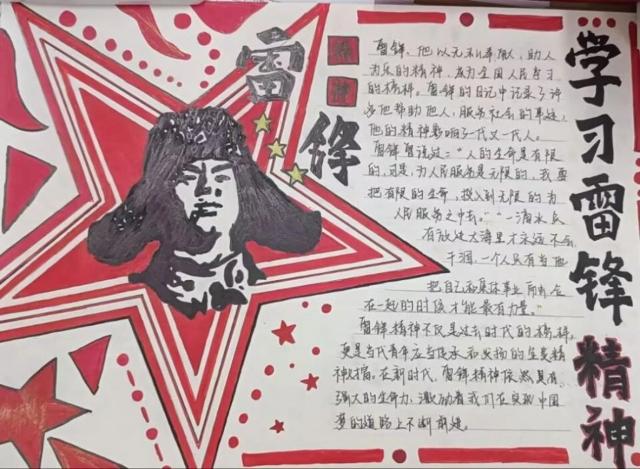 学习雷锋精神
雷锋
精神
雷锋，他以无私奉献、助人
为乐的精神，成为全国人民学习
的榜样。雷锋的日记中记录了许
多他帮助他人，服务社会的事迹，
他的精神影响了一代又一代人。
雷锋曾说过："人的生命是有限
的，可是，为人民服务是无限的，我要
把有限的生命，投入到无限的为
人民服务之中去。""一滴水只
有放进大海里才永远不会
干涸，一个人只有当他
把自己和集体事业融合
在一起的时候才能最有力量。"
雷锋精神不仅是过去时代的榜样，
更是当代青年应当传承和发扬的宝贵精
神财富。在新时代，雷锋精神依然具有
强大的生命力，激励着我们在实现中国
梦的道路上不断前进。